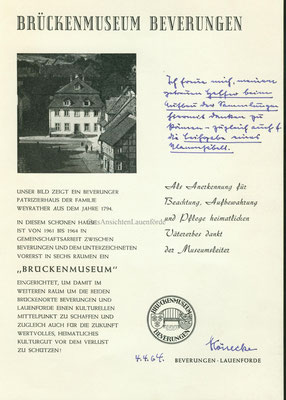 BRÜCKENMUSEUM BEVERUNGEN
Ich freue mich, meinen
getreuen Helfer beim
Aufbau der Sammlungen
hiermit danken zu
können – zugleich auch f.
die Leihgabe eines
UNSER BILD ZEIGT EIN BEVERUNGER
PATRIZIERHAUS DER FAMILIE
WEYRATHER AUS DEM JAHRE 1794.
IN DIESEM SCHÖNEN HAUSE
IST VON 1961 BIS 1964 IN
GEMEINSCHAFTSARBEIT ZWISCHEN
BEVERUNGEN UND DEM UNTERZEICHNETEN
VORERST IN SECHS RÄUMEN EIN
„BRÜCKENMUSEUM"
EINGERICHTET, UM DAMIT IM
WEITEREN RAUM UM DIE BEIDEN
BRÜCKENORTE BEVERUNGEN UND
LAUENFÖRDE EINEN KULTURELLEN
MITTELPUNKT ZU SCHAFFEN UND
ZUGLEICH AUCH FÜR DIE ZUKUNFT
WERTVOLLES, HEIMATLICHES
KULTURGUT VOR DEM VERLUST
ZU SCHÜTZEN!
AnsichtenLauenförde
Als Anerkennung für
Beachtung, Aufbewahrung
und Pflege heimatlichen
Vätererbes dankt
der Museumsleiter
BRÜCKENMUSEUM
BEVERUNGEN
4.4.64.
BEVERUNGEN · LAUENFÖRDE